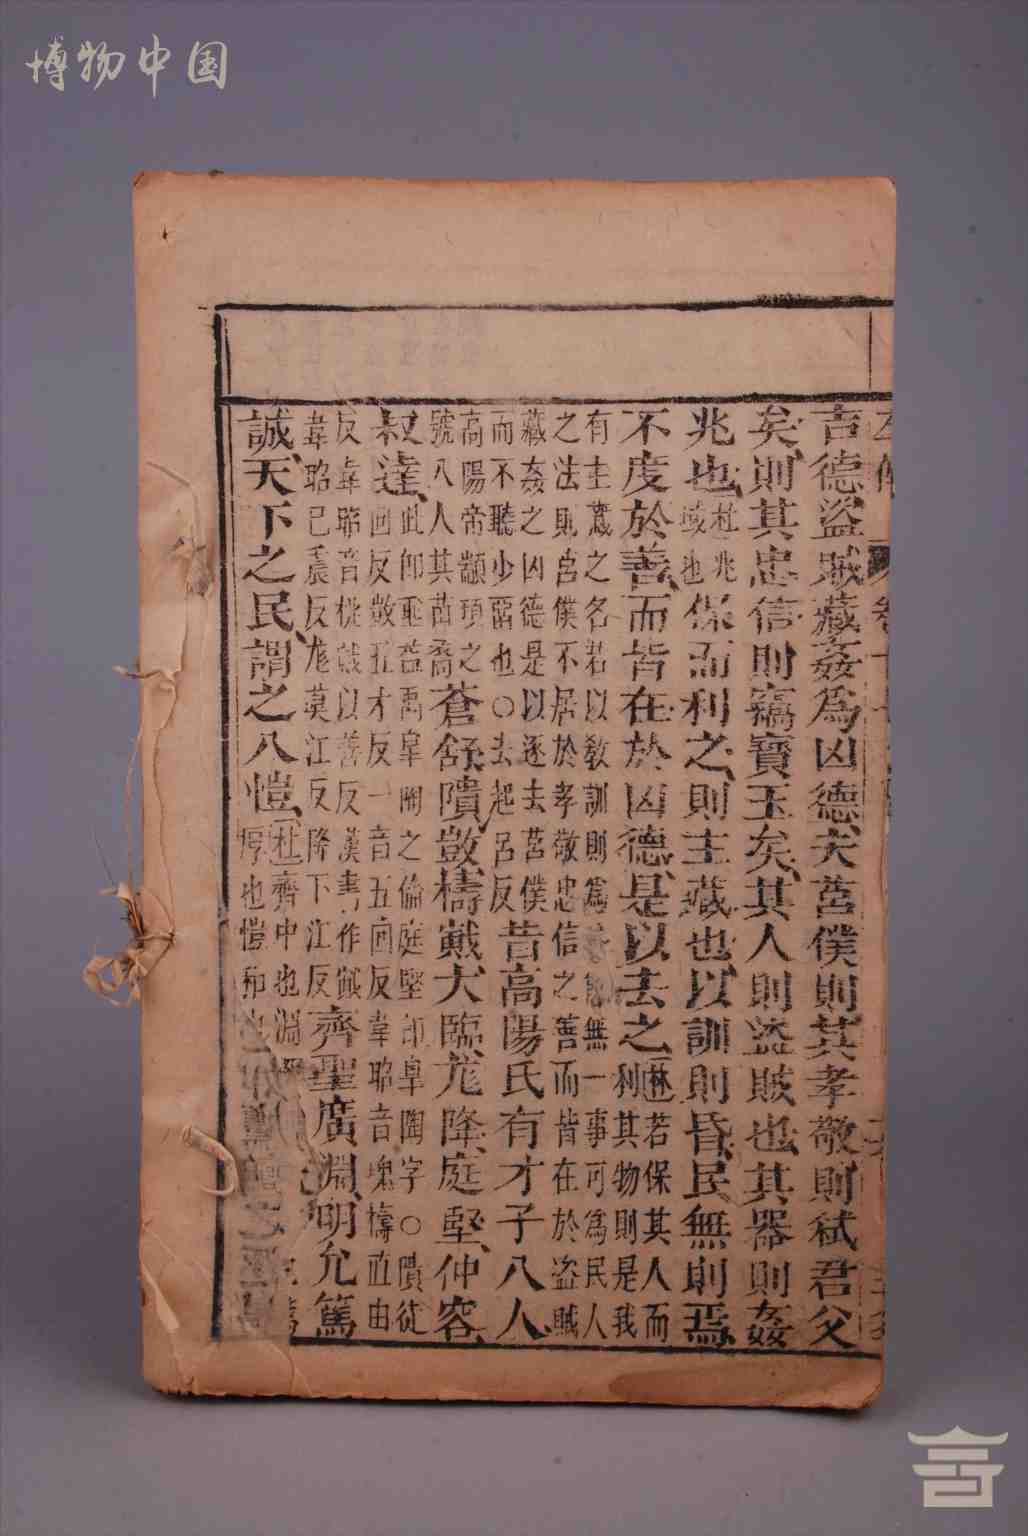 博物中国
吉德盜賊藏姦為凶德夫莒僕則其孝敬則弒君父
矣則其忠信則竊寶玉矣其人則盜賊也其器則姦
兆也杜兆域也保而利之則主藏也以訓則昏民無則焉
不度於善而皆在於凶德是以去之林若保其人而利其物則是我
有主藏之名若以教訓則為無一事可為民人
之法則莒僕不居於孝敬忠信之善而皆在於盜賊
藏姦之凶德是以逐去莒僕而不聽少畱也○去起呂反昔高陽氏有才子八人
高陽帝顓頊之號八人其苗裔蒼舒隤敳檮戭大臨尨降庭堅仲容
叔達此即垂益禹皐陶之倫庭堅即皐陶字○隤徒回反敳五才反一音五回反韋昭音瑰檮直由
反韋昭音桃戭以善反漢書作韋昭已震反尨莫江反降下江反齊聖廣淵明允篤
誠天下之民謂之八愷杜齊中也淵厚也愷和也